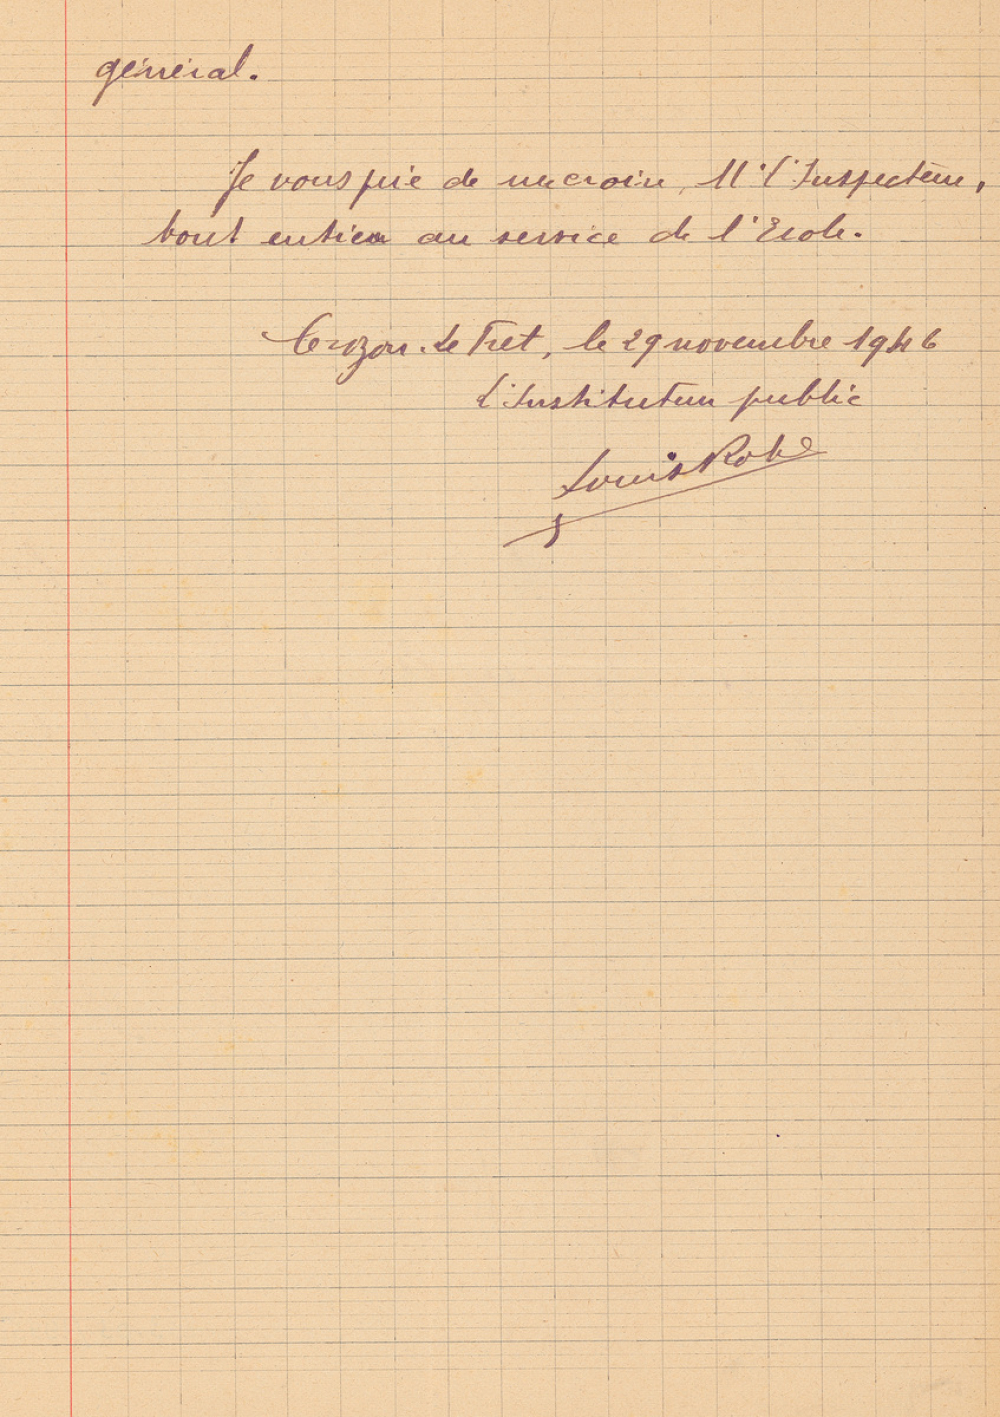 général.
Je vous prie de me croire, M. l'Inspecteur,
tout entier au service de l'Ecole.
Crozon-Le Fret, le 29 novembre 1946
L'Instituteur public
Louis